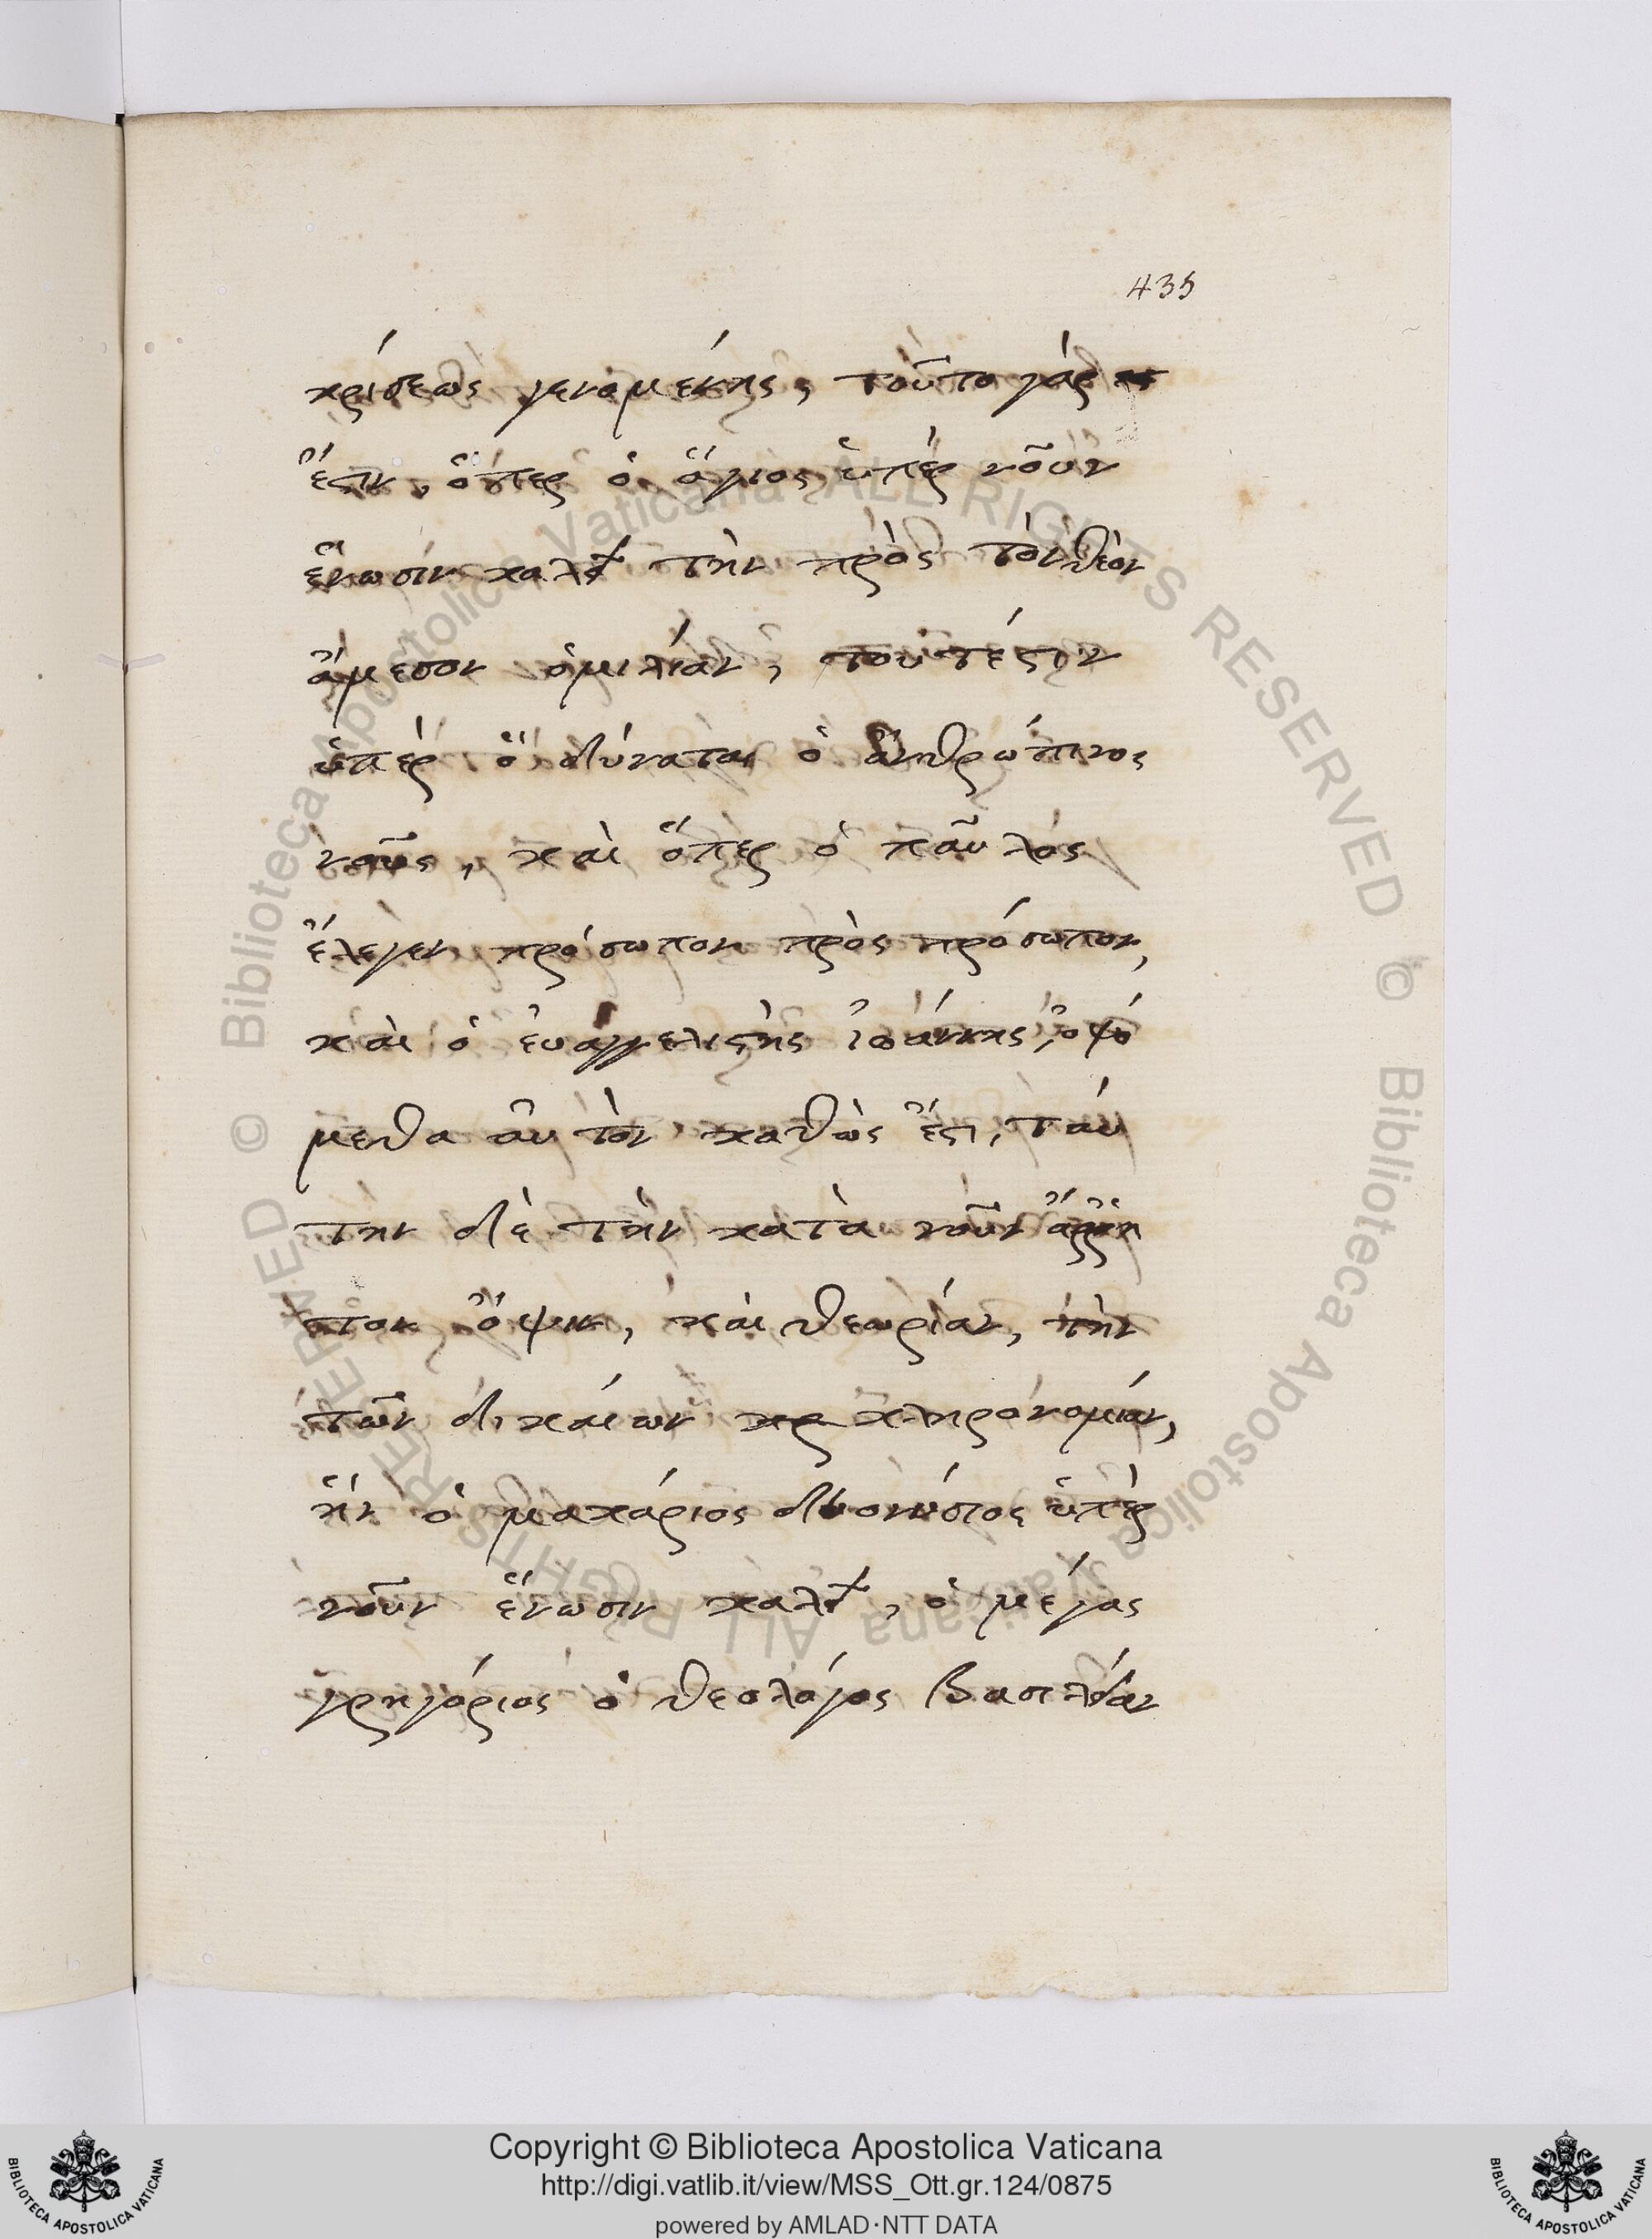 435
κρίσεως γενομένης, τοῦτο γὰρ
ἔστιν, ὅπερ ὁ ἅγιος ὑπὲρ νοῦν
ἕνωσιν καλεῖ τὴν πρὸς τὸν θεὸν
ἄμεσον ὁμιλίαν, τουτέστιν
ὑπὲρ ὃ δύναται ὁ ἀνθρώπινος
νοῦς, καὶ ὅπερ ὁ παῦλος
ἔλεγεν πρόσωπον πρὸς πρόσωπον,
καὶ ὁ εὐαγγελιστὴς ἰωάννης, ὀψό
μεθα αὐτὸν καθὼς ἔστι, ταύ
την δὲ τὴν κατὰ νοῦν ἄῤῥη
τον ὄψιν, καὶ θεωρίαν, τὴν
τῶν δικαίων κληρονομίαν,
ἣν ὁ μακάριος διονύσιος ὑπὲρ
νοῦν ἕνωσιν καλεῖ, ὁ μέγας
γρηγόριος ὁ θεολόγος βασιλείαν
© Biblioteca Apostolica Vaticana ALL RIGHTS RESERVED © Biblioteca Apostolica Vaticana ALL RIGHTS RESERVED
Copyright © Biblioteca Apostolica Vaticana
http://digi.vatlib.it/view/MSS_Ott.gr.124/0875
powered by AMLAD·NTT DATA
BIBLIOTECA APOSTOLICA VATICANA
BIBLIOTECA APOSTOLICA VATICANA